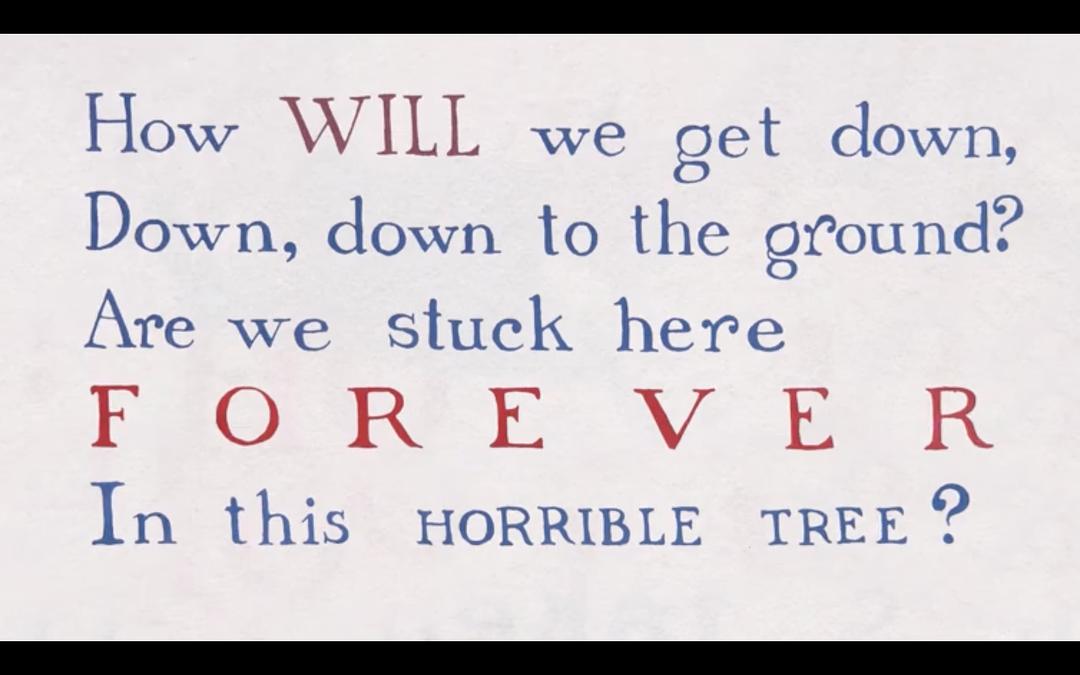 How WILL we get down,
Down, down to the ground?
Are we stuck here
FOREVER
In this HORRIBLE TREE?